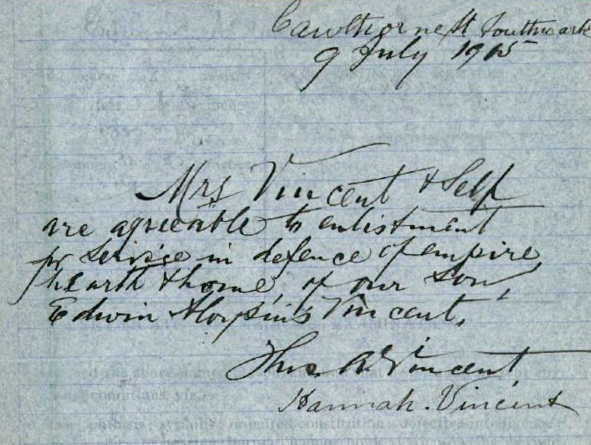 Cawthorne St Southwark
9 July 1915
Mrs Vincent & Self
are agreeable to enlistment
for service in defence of empire,
hearth & home, of our son,
Edwin Aloysius Vincent.
Thos A Vincent
Hannah. Vincent